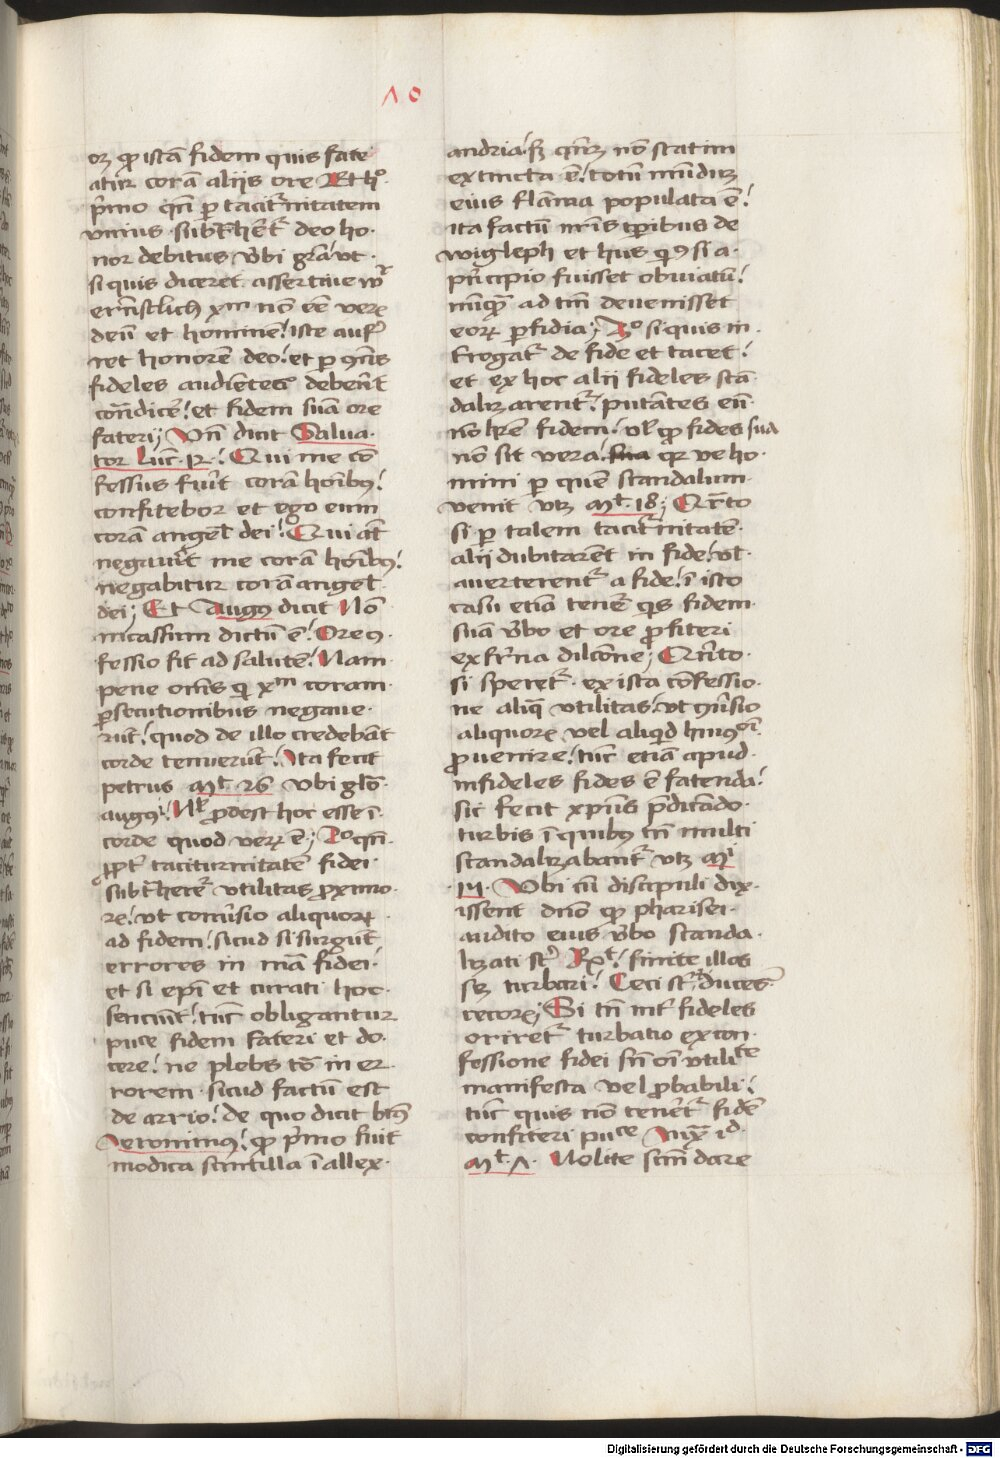 ꝫ ꝙ istā fidem quis fate
atur corā aliis ore Et hͦ
p̄mo qn̄ ꝑ taciturnitatem
deo ho
nor debitus v̄bi grā vt
si quis diceret assertiue
ernstlich xp̄m nō eē verū
deū et hominē iste aufer
ret honorē deo et ꝑ ꝯn̄s
fideles audiētes debent
cōdicē et fidem suā ore
fateri Vn̄ dicit Salua
tor Luc 12 Qui me cō
fessus fuit corā hoībꝯ
confitebor et ego eum
corā angel dei Qui at̄
negauit me corā hoībꝯ
negabitur corā angel
dei Et Augꝯ dicit Nō
incassum dictū ē Ore ꝯ
fessio fit ad salutē Nam
pene om̄s qui xp̄m coram
ꝑsecutionibus negaue
rūt quod de illo credebāt
corde tenuerūt Ita fecit
petrus Mt 26 vbi glō
augꝯ Nl̄ prodest hoc esse ī
corde quod verū ē 2o qn̄
ꝓpt taciturnitatē fidei
utilitas proximo
re vt conūsio aliquorꝝ
ad fidem sicud si surgūt
errores in mā fidei
et si epī et curati hoc
senciūt tūc obligantur
puce fidem fateri et do
cere ne plebs tō in er
rorem sicud factū est
de arrio de quo dicit btūs
Jeronimꝯ ꝙ p̄mo fuit
modica scintilla ī allex
andria sꝫ nō statim
extincta ē totū mūdū
eius flāma populata ē
ita factū nrīs tꝑibus de
wigleph et hus qꝯ si a
pn̄cipio fuisset obuiatū
nūqꝫ ad tm̄ deuenisset
eorꝝ ꝑfidia 3o si quis in
trogat de fide et tacet
et ex hoc alii fideles scā
dalizarentꝰ putātes eū
nō hr̄e fidem vl ꝙ fides sua
nō sit vera qr ve ho
mini ꝑ quem scandalum
venit vtꝫ Mt 18 Qrto
si ꝑ talem taciturnitatē
alii dubitarēt in fide vl
auerterentꝰ a fide ī isto
casu etiā tenet qs fidem
suā v̄bo et ore profiteri
ex fr̄na dilcōne Qnto
si speret ex ista cōfessio
ne aliq vtilitas vt ꝯūsio
aliquorū vel aliqd
prouenire tūc etiā apud
infideles fides ē fatenda
sic fecit xp̄us p̄dicādo
turbis ī quibꝯ tn̄ multi
scandalizabantꝰ vtꝫ Mt
15 Vbi cū discipuli dix
issent dn̄o ꝙ pharisei
audito eius v̄bo scanda
lizati st̄ Rt sinite illos
sꝫ turbari Ceci st̄ duces
cecorū Si tn̄ int fideles
oriretꝰ turbatio ex con
fessione fidei sn̄ oī vtilite
manifesta vel probabili
tūc quis nō tenet fidē
confiteri puce id
Mt 7 Nolite scm̄ dare
Digitalisierung gefördert durch die Deutsche Forschungsgemeinschaft - DFG